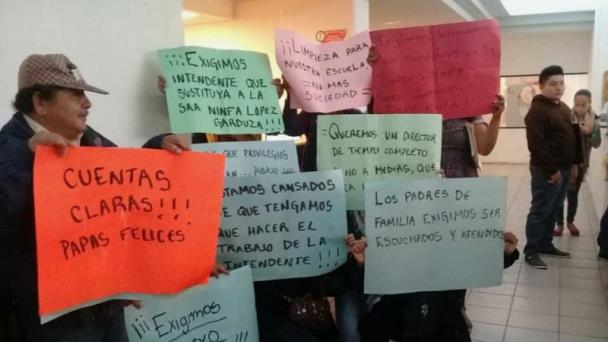 ¡¡¡EXIGIMOS
INTENDENTE QUE
SUSTITUYA A LA
SRA NINFA LOPEZ
GARDUZA !!!
¡¡LIMPIEZA PARA
NUESTRA ESCUELA
= NO MAS
SUCIEDAD =
EXIGIMOS
QUEREMOS UN DIRECTOR
DE TIEMPO COMPLETO
NO A MEDIAS, QUE
QUE PRIVILEGIOS
ABAJO LOS
CUENTAS
CLARAS!!!
PAPAS FELICES
TAMOS CANSADOS
E QUE TENGAMOS
QUE HACER EL
TRABAJO DE LA
INTENDENTE !!!
LOS PADRES DE
FAMILIA EXIGIMOS SER
ESCUCHADOS Y ATENDIDOS
¡¡¡EXIGIMOS